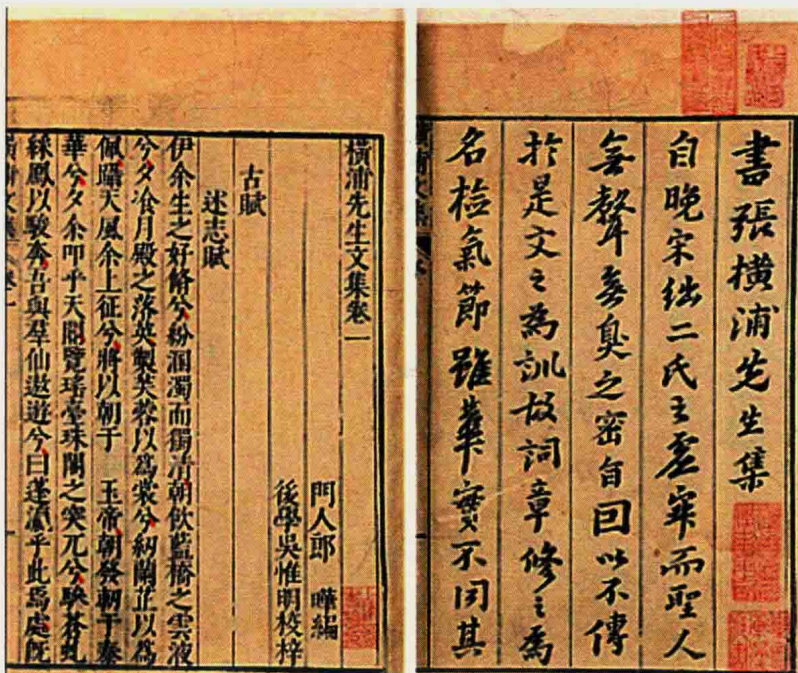 書張橫浦先生集
自晚宋絀二氏之虗寂而聖人
無聲無臭之密旨囙以不傳
於是文之為訓故詞章修之為
名檢氣節雖華實不同其
橫浦先生文集卷一
門人郎 曄編
後學吳惟明校梓
古賦
述志賦
伊余生之好脩兮紛溷濁而獨清朝飲藍橋之雲液
兮夕飡月殿之落英製芙蓉以為裳兮紉蘭芷以為
佩躡天風余上征兮將以朝于 玉帝朝發軔于秦
華兮夕余叩乎天閽覽瑤臺珠闕之突兀兮驂蒼虬
綵鳳以駿奔吾與羣仙遨遊兮曰蓬瀛乎此焉處既